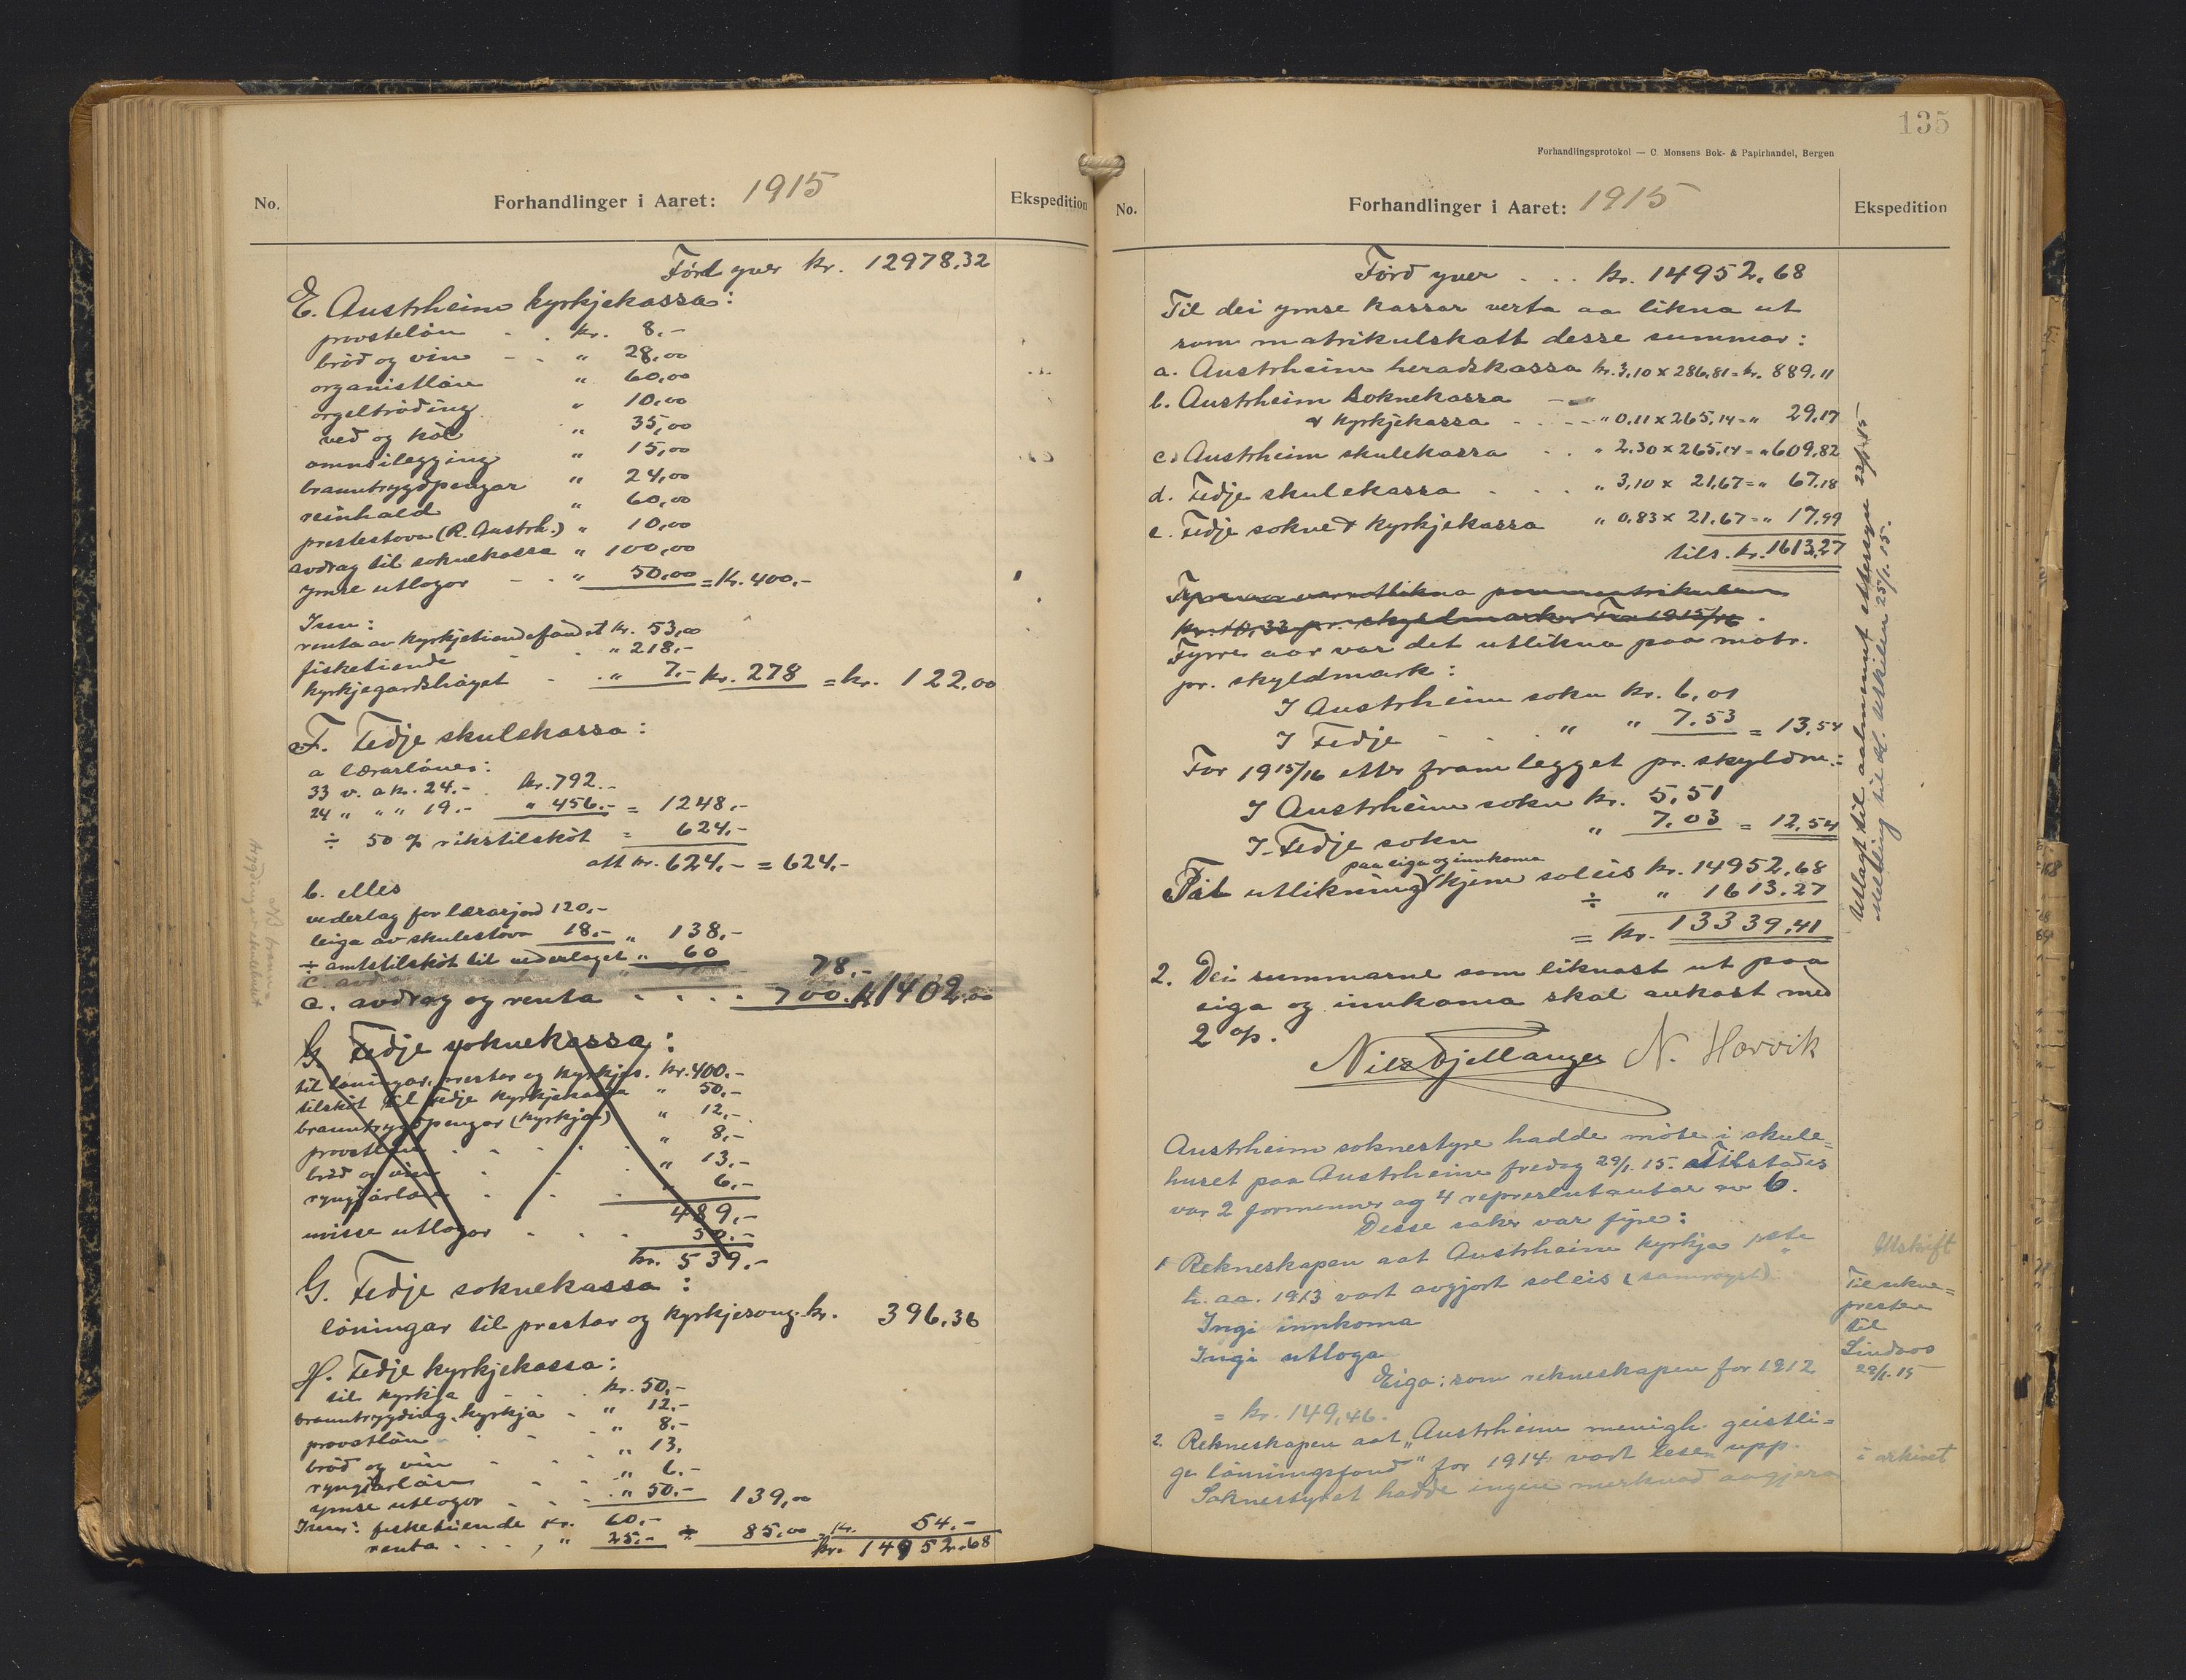 No.
Forhandlinger i Aaret: 1915
Ekspedition
Förd yver kr. 12978,32
E. Austrheim kyrkjekassa:
provstelön . . kr. 8.-
bröd og vin - . " 28,00
organistlön " 60,00
orgeltröding " 10,00
ved og kol " 35,00
omnsilegging " 15,00
branntrygdpengar " 24,00
reinhald " 60,00
prestestova (R. Austrh.) " 10,00
avdrag til soknekassa " 100,00
ymse utlogor - . " 50,00 = kr. 400.-
Inn:
renta av kyrkjetiendefondet kr. 53,00
fisketiende . " 218.-
kyrkjegardshöyet . . " 7.- kr. 278 = kr. 122,00
F. Fedje skulekassa:
a lærarlöner:
33 v. a kr. 24.- . kr. 792.-
24 " " " 19.- " 456.- = 1248.-
÷ 50 % rikstilskot = 624.-
att kr. 624.- = 624.-
b. elles
vederlag for lærarjord 120.-
leiga av skulestova 18.- " 138.-
÷ amtstilskot til vederlaget " 60
78.-
c. avdrag og renta . . . . 700. kr 1402,00
G. Fedje soknekassa:
til löningar, prestar og kyrkjes. kr. 400.-
tilskot til Fedje kyrkjekassa " 50.-
branntrygdpengar (kyrkja) " 12.-
provstlön . . . " 8.-
bröd og vin . . . " 13.-
ryngjarlön . . . " 6.-
489.-
uvisse utlogor . . . 50.-
kr. 539.-
G. Fedje soknekassa:
löningar til prestar og kyrkjesong. kr. 396,36
H. Fedje kyrkjekassa:
til kyrkja - . . kr. 50.-
branntrygding. kyrkja . " 12.-
provstlön . . . " 8.-
bröd og vin . . . " 13.
ryngjarlön . . " 6.-
ymse utlogor . . . " 50.- 139,00
Inn: fisketiende kr. 60.-
renta . . . , " 25.- ÷ 85,00 = kr. 54.-
kr. 14952.68
135
Forhandlingsprotokol — C. Monsens Bok- & Papirhandel, Bergen
No.
Forhandlinger i Aaret: 1915
Ekspedition
Förd yver . . . kr. 14952,68
Til dei ymse kassar verta aa likna ut
som matrikulskatt desse summar:
a. Austrheim heradskassa kr. 3,10 x 286,81 = kr. 889,11
b. Austrheim soknekassa
& kyrkjekassa - . - - " 0,11 x 265,14 = " 29,17
c. Austrheim skulekassa . . " 2.30 x 265,14 = " 609,82
d. Fedje skulekassa . . . " 3,10 x 21,67 = " 67,18
e. Fedje sokne & kyrkjekassa " 0,83 x 21,67 = " 17,99
tils. kr. 1613,27
Fyrre aar var det utlikna paa matr.
pr. skyldmark:
I Austrheim sokn kr. 6,01
I Fedje - . . " " 7.53 = 13,54
For 1915/16 etter framlegget pr. skyldm.:
I Austrheim sokn kr. 5,51
I Fedje sokn " 7,03 = 12,54
paa eiga og innkoma
Til utlikning kjem soleis kr. 14952,68
÷ " 1613.27
= kr. 13339,41
2. Dei summarne som liknast ut paa
eiga og innkoma skal aukast med
2 %.
Nils Kjellanger N. Horvik
Utlagt til aalmennt ettersyn 23/1-15
Melding til skilen 25/1.15.
Austrheim soknestyre hadde möte i skule=
huset paa Austrheim fredag 29/1. 15. Tilstades
var 2 formenner og 4 representantar av 6.
Desse saker var fyre:
1 Rekneskapen aat Austrheim kyrkja
k. aa. 1913 vart avgjort soleis (samröystt)
Ingi innkoma
Ingi utloga
Eiga: som rekneskapen for 1912
= kr. 149,46.
2. Rekneskapen aat "Austrheim menigh. geistli=
ge lönningsfond" for 1914 vart lesen upp.
Soknestyret hadde ingen merknad aa gjera
Utskrift
Til sokne=
presten
til
Lindaas
29/1.15
i arkivet